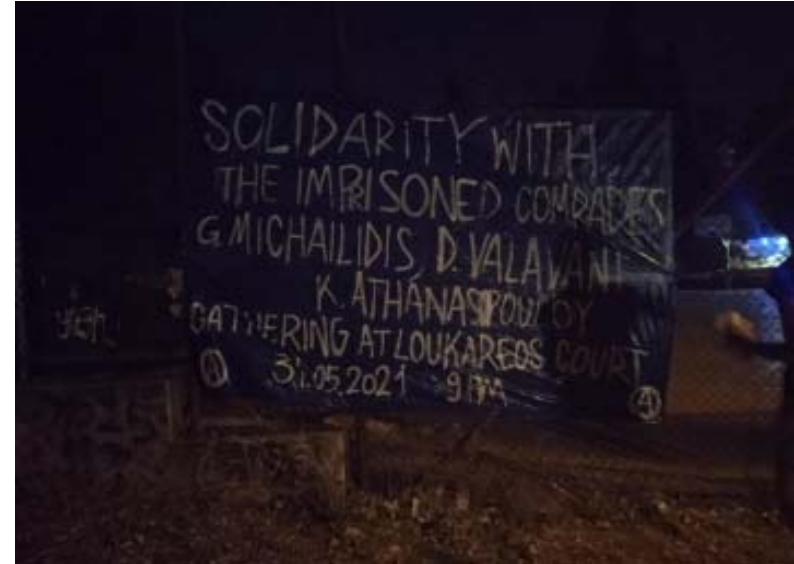 SOLIDARITY WITH
THE IMPRISONED COMRADES
G. MICHAILIDIS, D. VALAVANI
K. ATHANASOPOULOY
GATHERING AT LOUKAREOS COURT
31.05.2021 9 AM